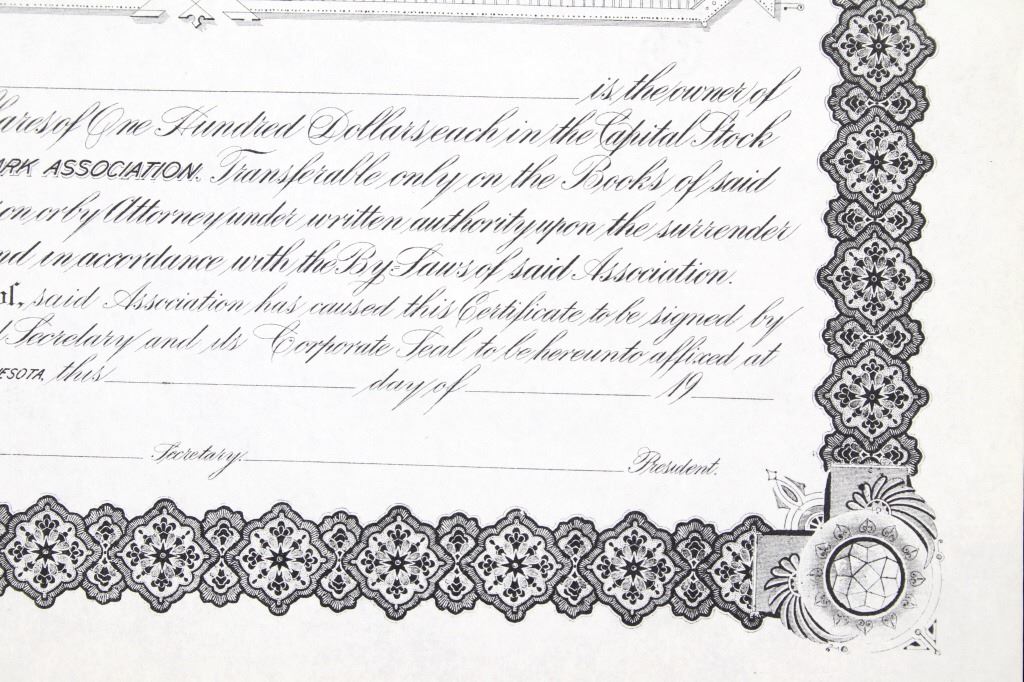 is the owner of
of One Hundred Dollars each in the Capital Stock
ASSOCIATION. Transferable only on the Books of said
or by Attorney under written authority upon the surrender
in accordance with the By-Laws of said Association.
said Association has caused this Certificate to be signed by
Secretary and its Corporate Seal to be hereunto affixed at
this day of 19
Secretary. President.